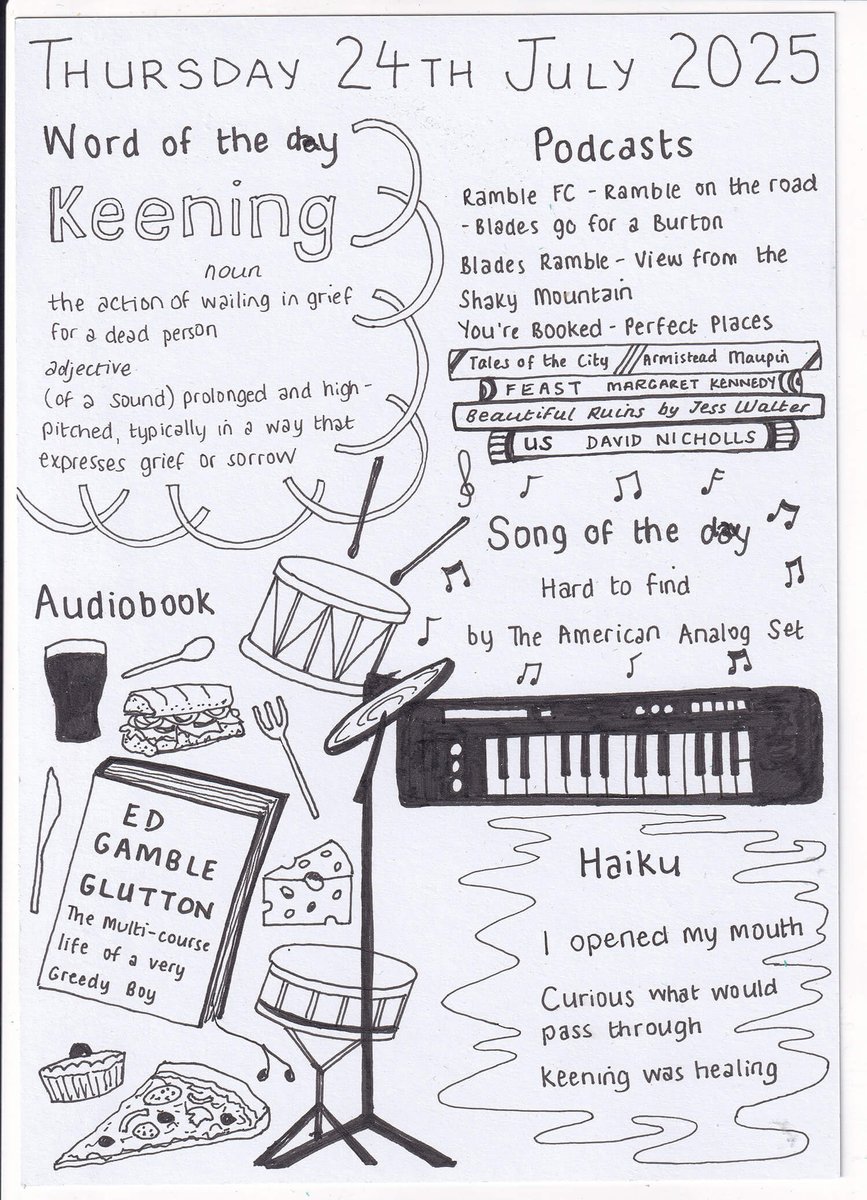 THURSDAY 24TH JULY 2025
Word of the day
Keening
noun
the action of wailing in grief
for a dead person
adjective
(of a sound) prolonged and high-
pitched, typically in a way that
expresses grief or sorrow
Podcasts
Ramble FC - Ramble on the road
- Blades go for a Burton
Blades Ramble - View from the
Shaky Mountain
You're Booked - Perfect Places
Tales of the City /// Armistead Maupin
FEAST MARGARET KENNEDY
Beautiful Ruins by Jess Walter
US DAVID NICHOLLS
Song of the day
Hard to find
by The American Analog Set
Audiobook
ED
GAMBLE
GLUTTON
The Multi-course
life of a very
Greedy Boy
Haiku
I opened my mouth
Curious what would
pass through
Keening was healing